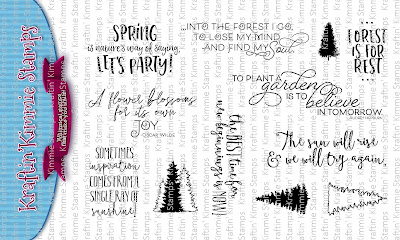 Kraftin' Kimmie Stamps
SPRING
is nature's way of saying,
LET'S PARTY!
...INTO THE FOREST I GO,
TO LOSE MY MIND
AND FIND MY Soul
FOREST
IS FOR
REST
TO PLANT A
garden
IS TO
believe
IN TOMORROW.
A flower blossoms
for its own
JOY
OSCAR WILDE
the BEST time for
new beginnings is NOW!
The sun will rise
& we will try again.
SOMETIMES
inspiration
COMES FROM A
SINGLE RAY OF
sunshine!